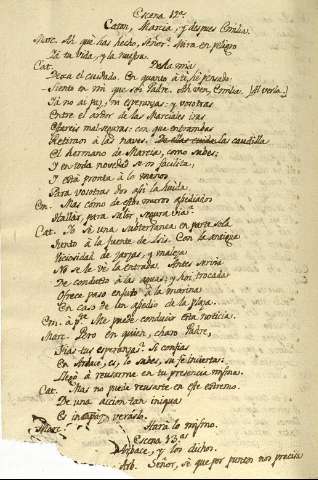 Escena 12ª
Caton, Marcia, y despues Emilia.
Marc. Ah que has hecho, Señor! Mira en peligro
Tu tu vida, y la nuestra.
Cat. De la mia
Dexa el cuidado. En quanto à ti hè pensado.
Siento en mi que soi Padre. Ah ven, Emilia. (Al verla.)
Ti no ai paz, ni esperanzas: y vosotras
Entre el ardor de las Marciales iras
Estareis mal seguras: con que entrambas
Retiraos à las naves. De ellas cuida la caudilla
El hermano de Marcia, como sabes;
Y en todo nos lo facilita,
Y està pronta à lo
Para vosotras dos asi la huida.
Em. Mas cómo de estos muros asediados
Hallar, para salir, segura via?
Cat. Yo sè una subterranea en parte sola
Junto à la fuente de Isis. Con la antigua
Viciosidad de zarzas, y maleza
No se le vè la entrada. Antes servia
De conducto à las aguas: y hoi trocada
Ofrece paso enjuto à la marina
En caso de un asedio de la plaza.
Em. à pte. Me puede conducir esta noticia.
Marc. Pero en quien, charo Padre,
Fias tus esperanzas? Si confias
En Arbace, es, lo sabes, su fè incierta:
Llegó à reusarme en tu presencia misma.
Cat. Mas no puede reusarte en este extremo.
De una accion tan iniqua
Es incapaz: veràslo.
Marc. Harà lo mismo.
Escena 13ª
Arbace, y los dichos.
Arb. Señor, sè que por puntos nos precisa